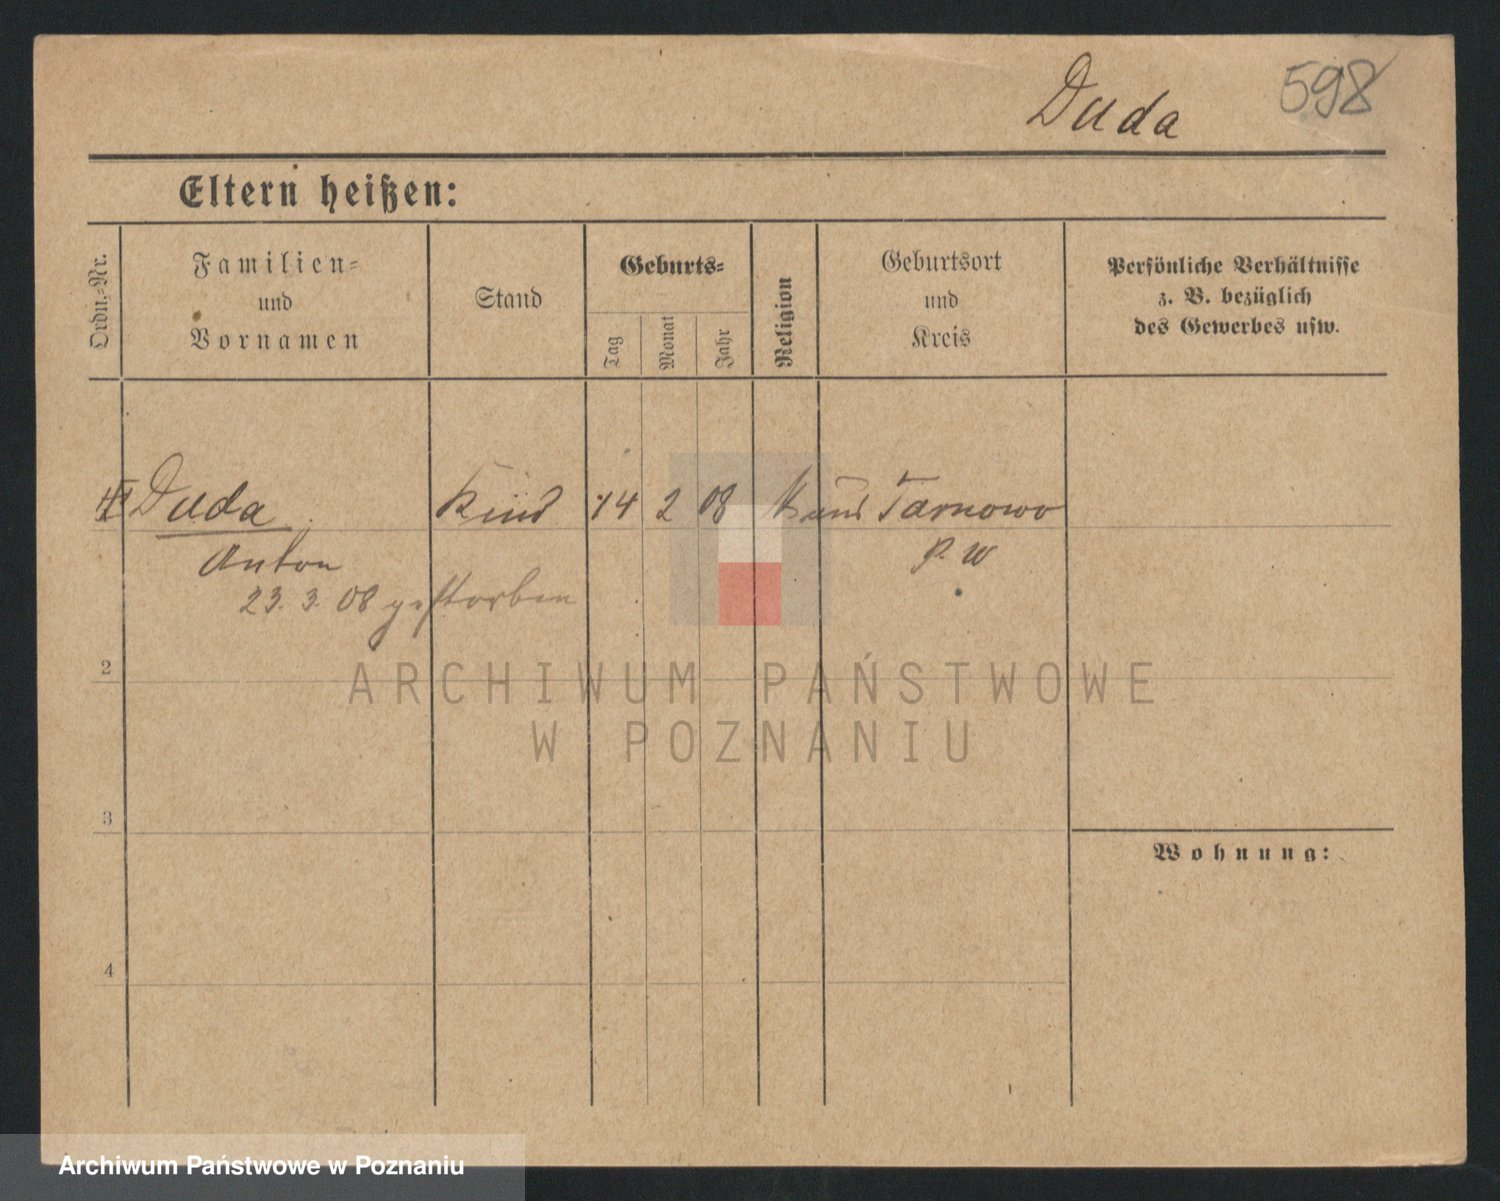 Duda 598
Eltern heißen:
Ordn.=Nr.
Familien=
und
Vornamen
Stand
Geburts=
Tag
Monat
Jahr
Religion
Geburtsort
und
Kreis
Persönliche Verhältnisse
z. B. bezüglich
des Gewerbes usw.
Duda Kind 14 2 08 Tarnowo
Anton P. W
23. 3. 08 gestorben
2
3
4
Wohnung:
ARCHIWUM PAŃSTWOWE
W POZNANIU
Archiwum Państwowe w Poznaniu